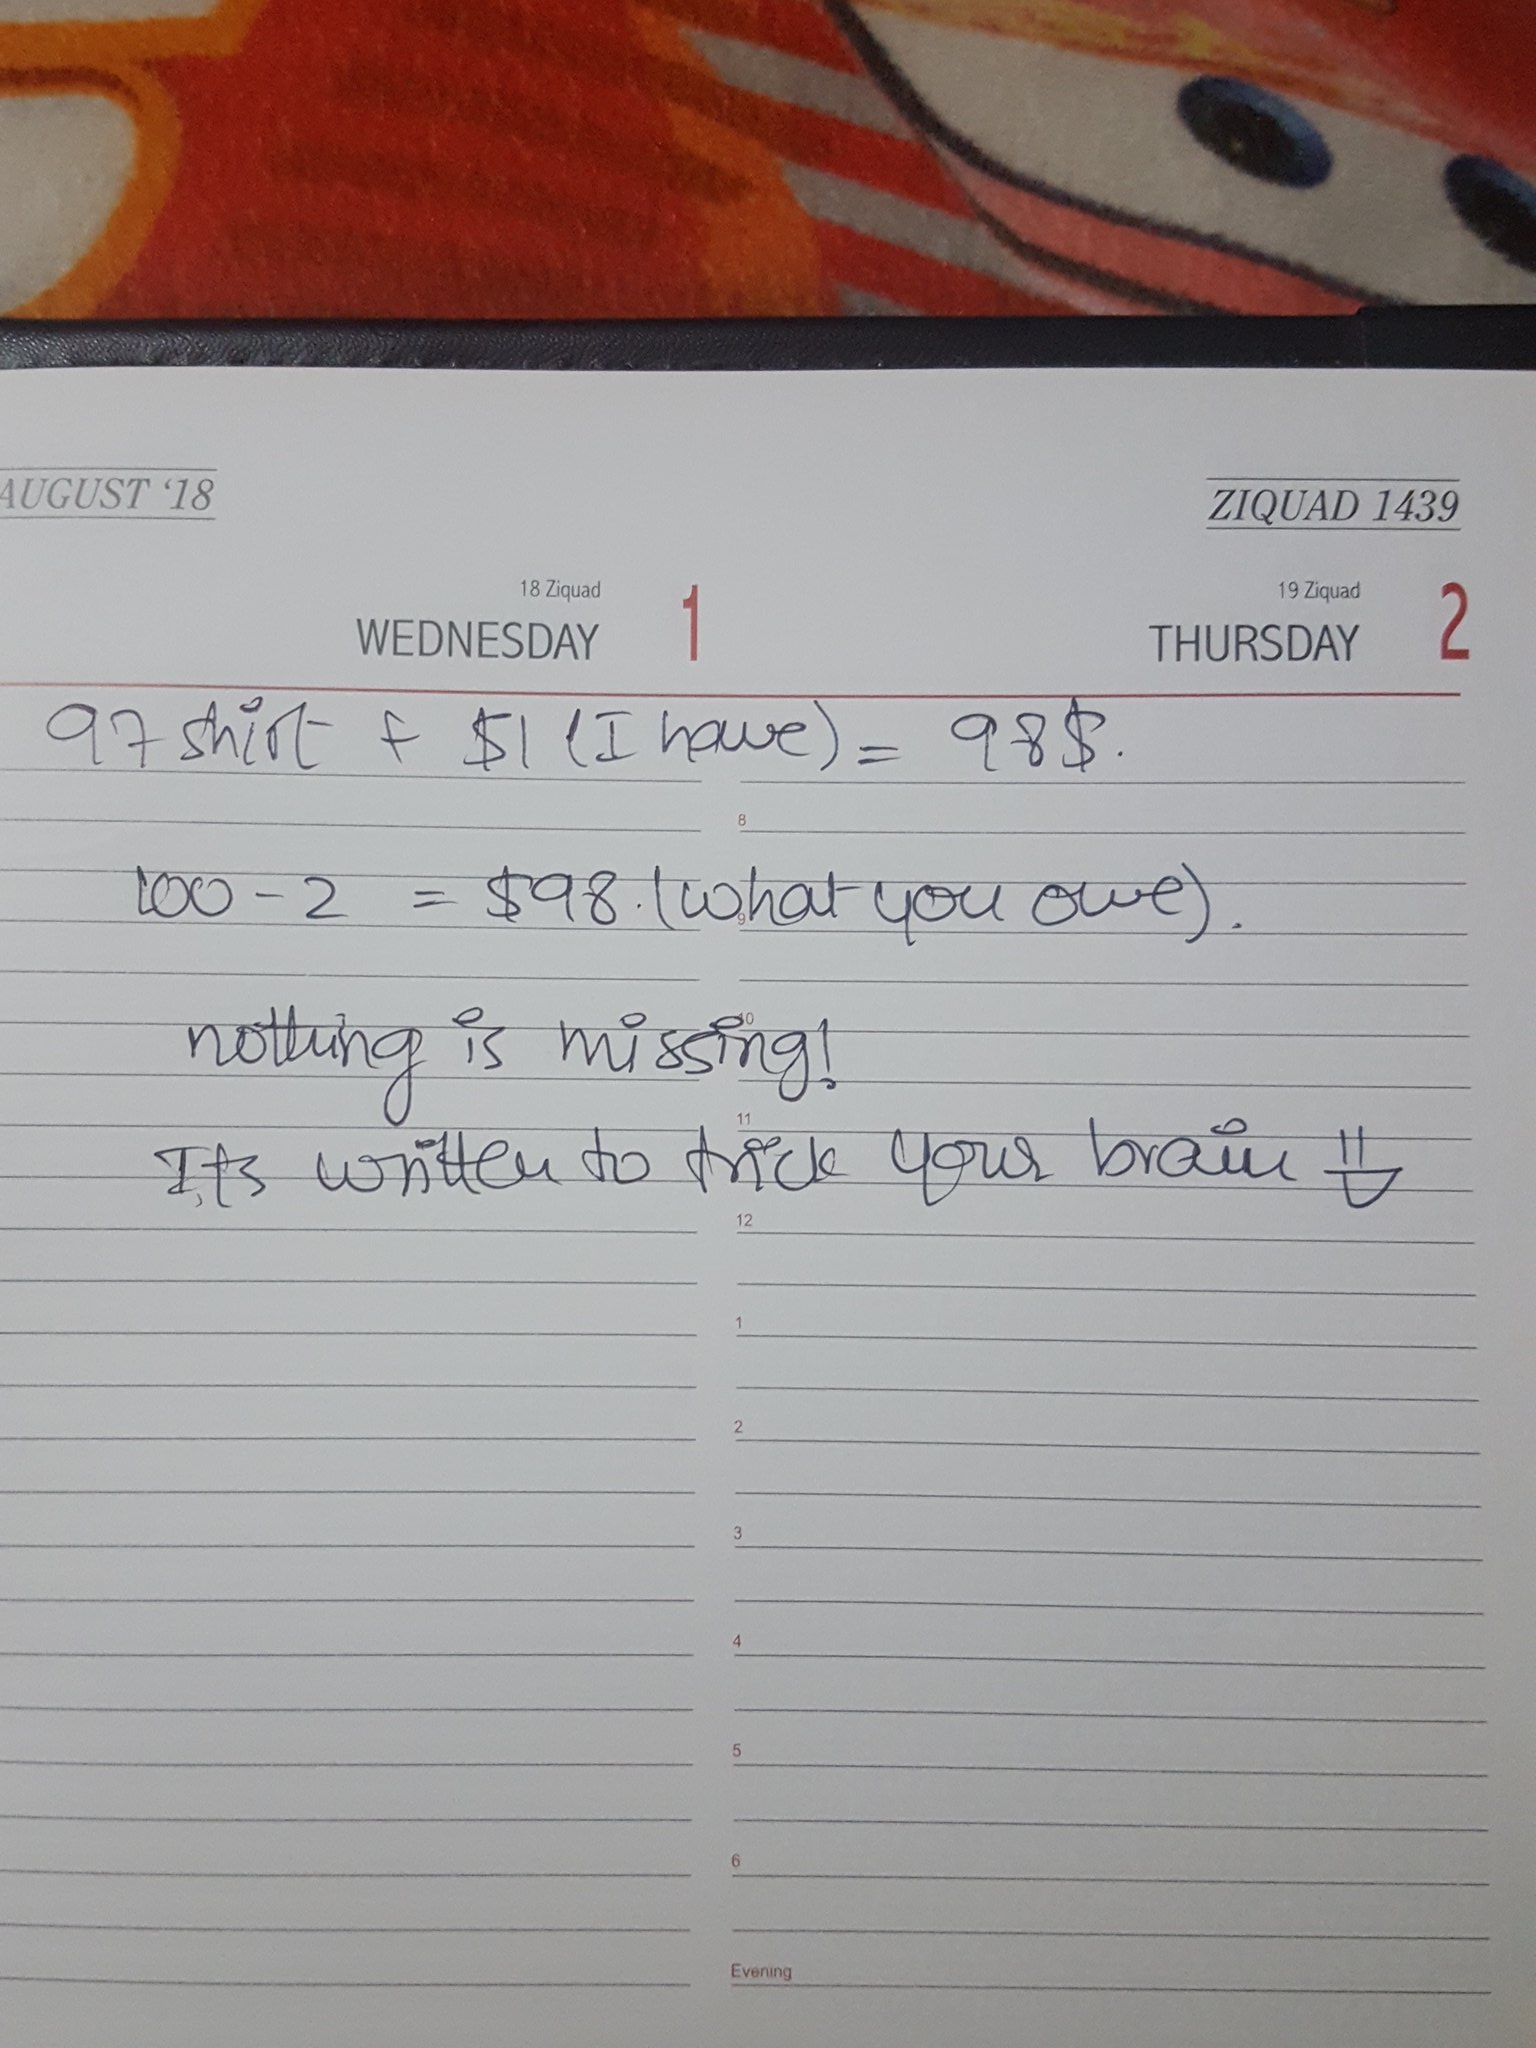 AUGUST '18
ZIQUAD 1439
18 Ziquad
WEDNESDAY 1
19 Ziquad
THURSDAY 2
97 shirt + $1 (I have) = 98$.
8
100 - 2 = $98. (what you owe).
9
10
nothing is missing!
11
Its written to trick your brain
12
1
2
3
4
5
6
Evening